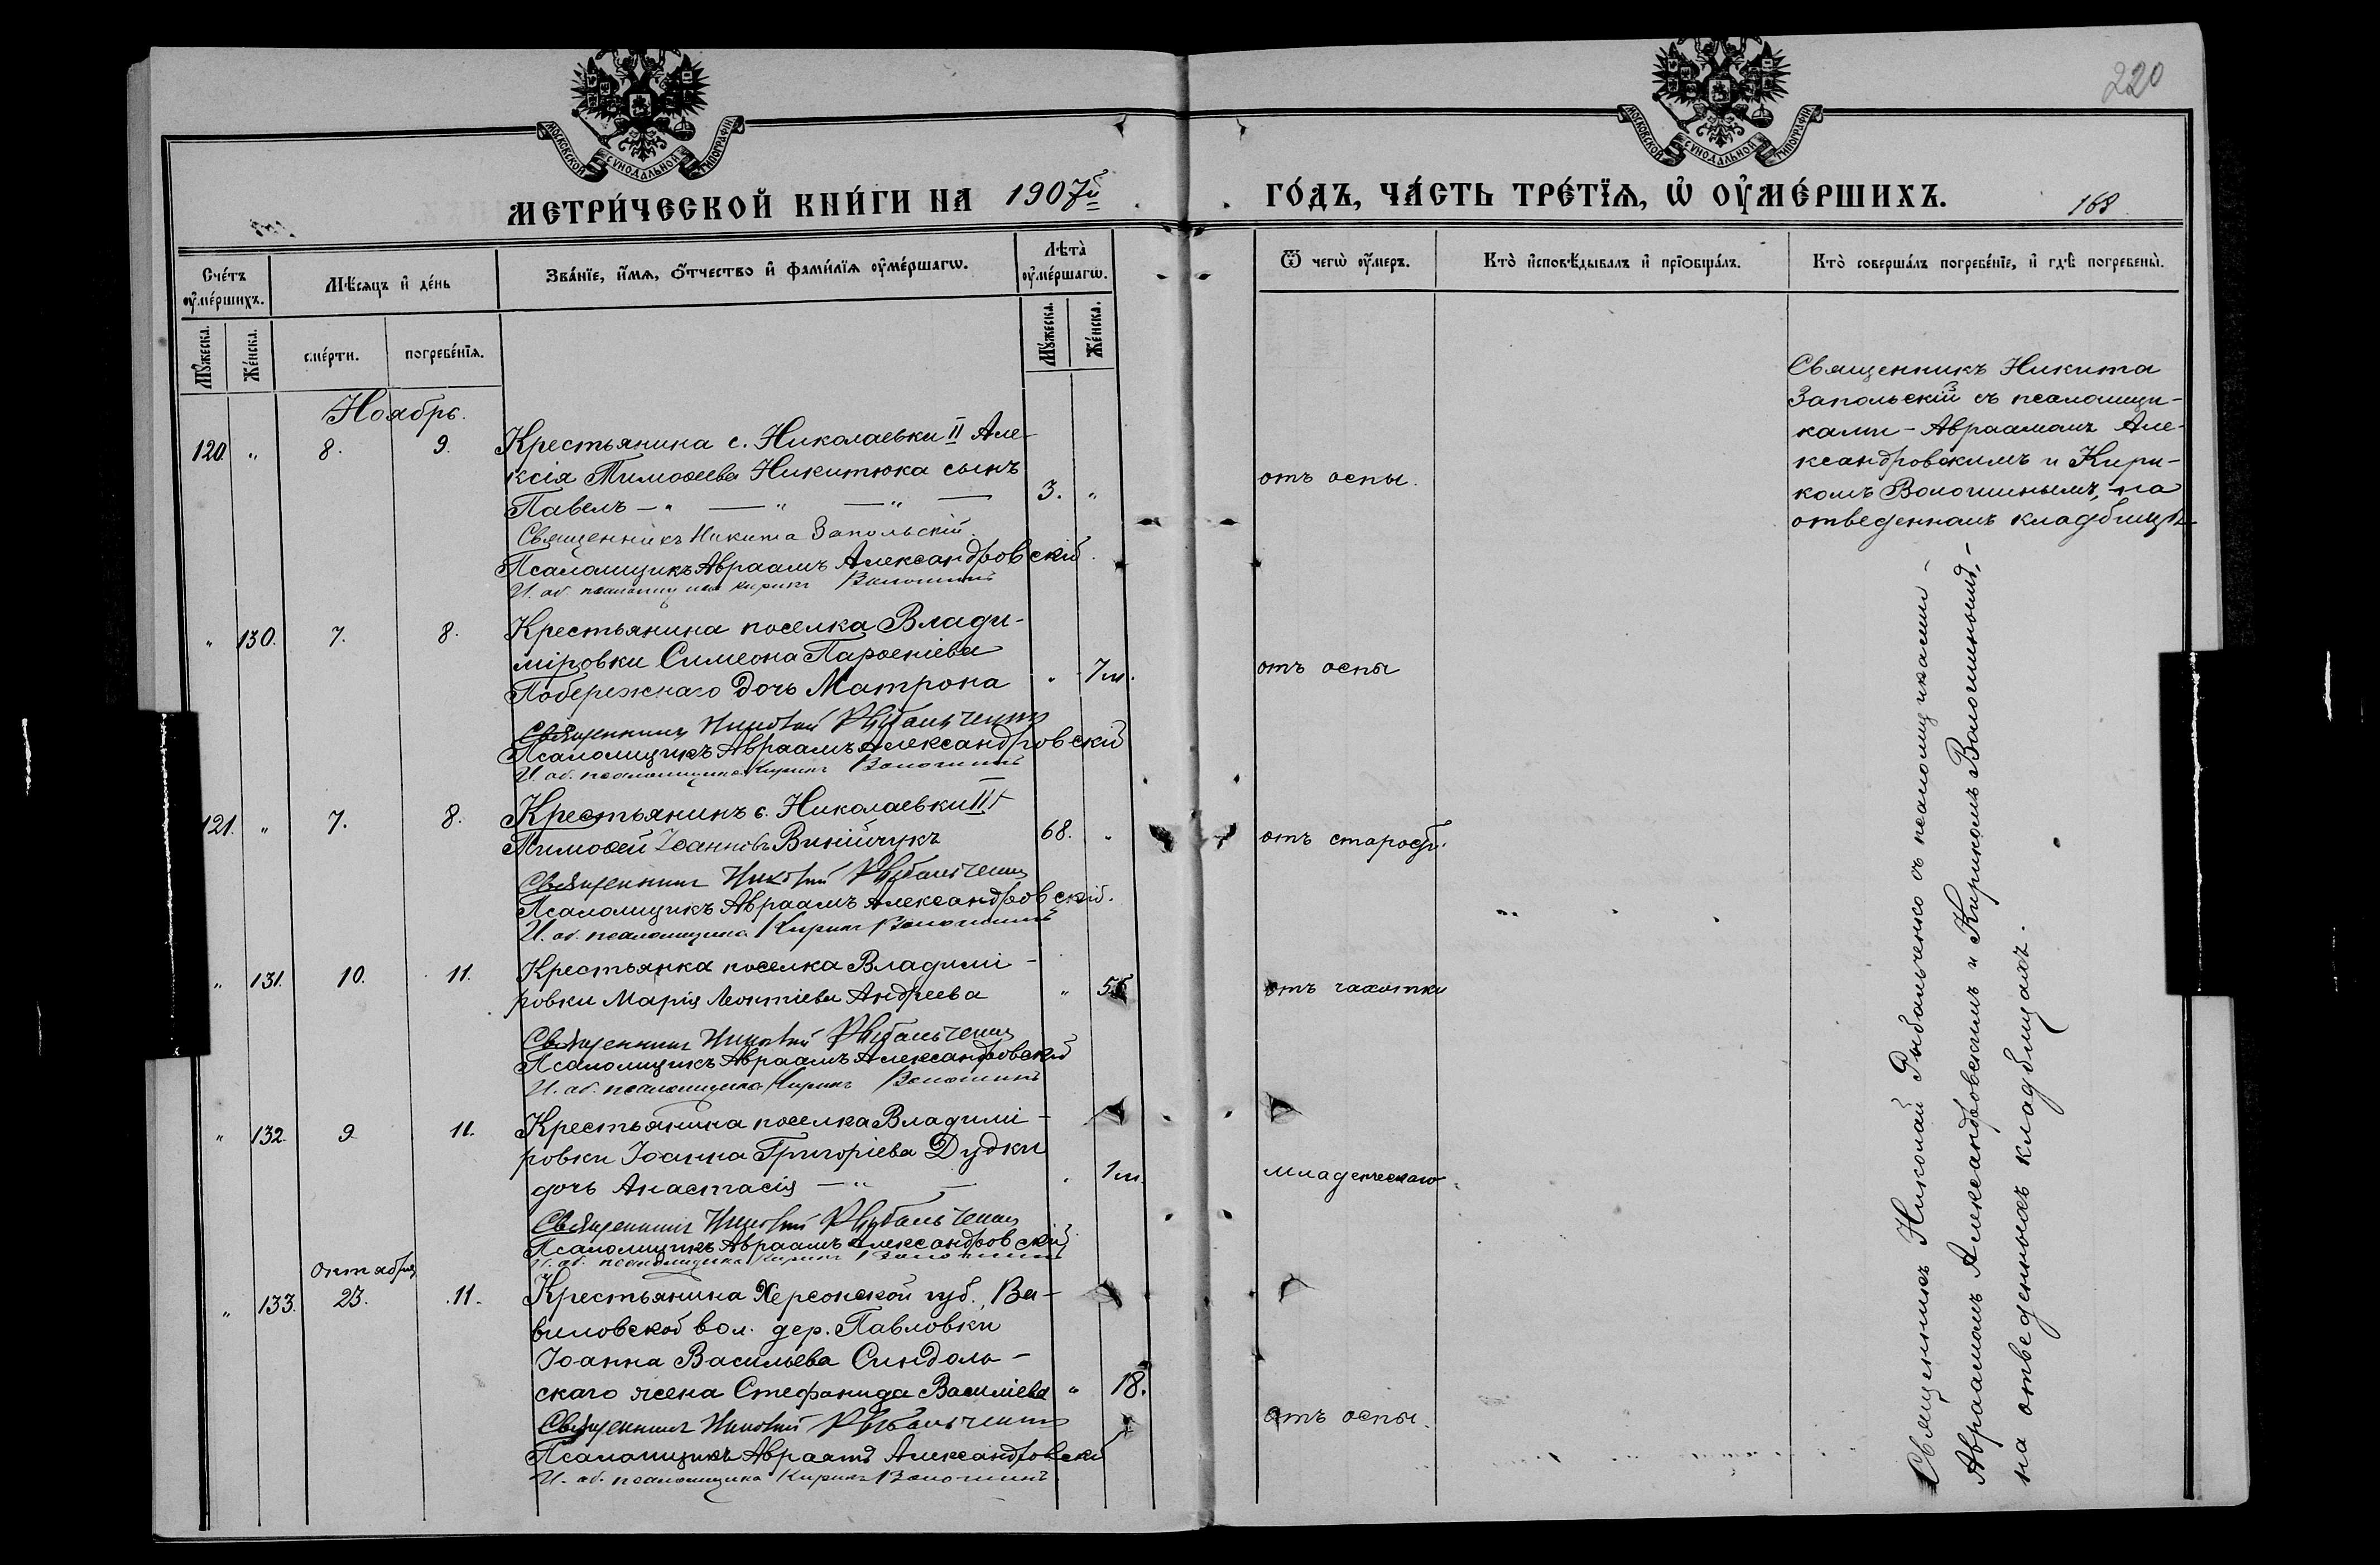 220
МОСКОВСКОЙ СУНОДАЛЬНОЙ ТИПОГРАФІИ
МОСКОВСКОЙ СУНОДАЛЬНОЙ ТИПОГРАФІИ
МЕТРИ́ЧЕСКОЙ КНИ́ГИ НА 1907й
ГО́ДЪ, ЧА́СТЬ ТРЕ́ТЇѦ, Ѡ҆ ОУ҆МЕ́РШИХЪ.
168
Сче́тъ оу҆ме́ршихъ.
Мꙋ́жеска.
Же́нска.
Мѣ́сяцъ и҆ де́нь
сме́рти.
погребе́нїѧ.
Зва́нїе, и҆́мѧ, ѻ҆́тчество и҆ фами́лїѧ оу҆ме́ршагѡ.
Лѣта̀ оу҆ме́ршагѡ.
Мꙋ́жеска.
Же́нска.
Ѿ чегѡ̀ оу҆́меръ.
Кто̀ и҆сповѣ́дывалъ и҆ прїѡбща́лъ.
Кто̀ соверша́лъ погребе́нїе, и҆ гдѣ̀ погребены̀.
Ноябрь.
120. " 8. 9. Крестьянина с. Николаевки II Але-
ксія Тимоѳеева Никитюка сынъ
Павелъ — " — " — 3. " отъ оспы.
Священникъ Никита Запольскій
Псаломщикъ Авраамъ Александровскій.
И. об. псаломщика Кирикъ Волошинъ
Священникъ Никита
Запольскій съ псаломщи-
ками - Авраамомъ Але-
ксандровскимъ и Кири-
комъ Волошинымъ, на
отведенномъ кладбищѣ
" 130. 7. 8. Крестьянина поселка Влади-
міровки Симеона Парѳеніева
Побережнаго дочь Матрона " 7м. отъ оспы
Священникъ Николай Рыбальченко
Псаломщикъ Авраамъ Александровскій
И. об. псаломщика Кирикъ Волошинъ
121. " 7. 8. Крестьянинъ с. Николаевки II
Тимоѳей Іоанновъ Винійчукъ 68. " отъ старости
Священникъ Николай Рыбальченко
Псаломщикъ Авраамъ Александровскій.
И. об. псаломщика Кирикъ Волошинъ
" 131. 10. 11. Крестьянка поселка Владимі-
ровки Марія Леонтіева Андреева " отъ чахотки
Священникъ Николай Рыбальченко
Псаломщикъ Авраамъ Александровскій
И. об. псаломщика Кирикъ Волошинъ
" 132. 9 11. Крестьянина поселка Владимі-
ровки Іоанна Григоріева Дудки
дочь Анастасія — " — . 1м. младенческаго
Священникъ Николай Рыбальченко
Псаломщикъ Авраамъ Александровскій
И. об. псаломщика Кирикъ Волошинъ
октября
" 133. 23. 11. Крестьянина Херсонской губ., Ва-
виловской вол. дер. Павловки
Іоанна Васильева Синдоль-
скаго жена Стефанида Василіева " 18. отъ оспы.
Священникъ Николай Рыбальченко
Псаломщикъ Авраамъ Александровскій
И. об. псаломщика Кирикъ Волошинъ.
Священникъ Николай Рыбальченко съ псаломщиками -
Авраамомъ Александровскимъ и Кирикомъ Волошинымъ, -
на отведенныхъ кладбищахъ.